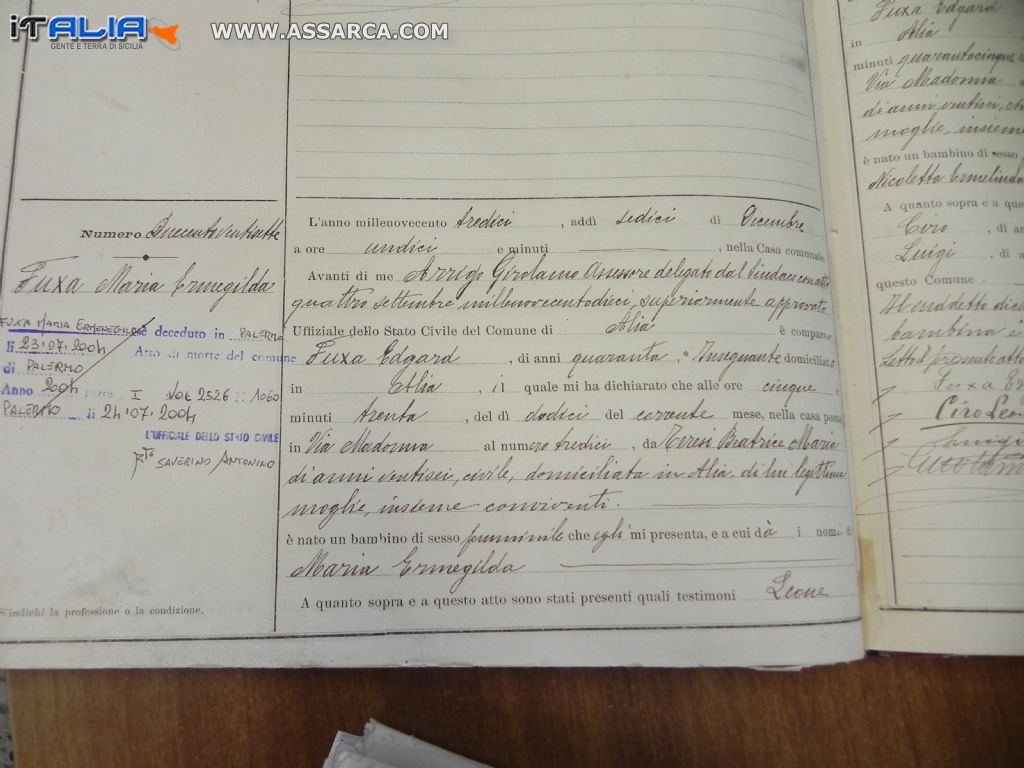 iTALIA
GENTE E TERRA DI SICILIA
WWW.ASSARCA.COM
Numero Duecentoventisette
Fuxa Maria Ermegilda
FUXA MARIA ERMENEGILDA è deceduto in PALERMO
li 23.07.2004 Atto di morte del comune
di PALERMO
Anno 2004 parte I Vol 2526 1060
PALERMO li 24.07.2004
L'UFFICIALE DELLO STATO CIVILE
Rto SAVERINO ANTONINO
S'indichi la professione o la condizione.
L'anno millenovecento tredici, addì sedici di Dicembre
a ore undici e minuti, nella Casa comunale
Avanti di me Arrigo Girolamo Assessore delegato dal Sindaco con atto
quattro settembre millenovecentodieci, superiormente approvato
Uffiziale dello Stato Civile del Comune di Alia è comparso
Fuxa Edgard, di anni quaranta, * Insegnante domiciliato
in Alia, il quale mi ha dichiarato che alle ore cinque e
minuti trenta, del dì dodici del corrente mese, nella casa posta
in Via Madonna al numero tredici, da Teresi Beatrice Maria
di anni ventisei, civile, domiciliata in Alia, di lui legittima
moglie, insieme conviventi.
è nato un bambino di sesso femminile che egli mi presenta, e a cui dà i nomi di
Maria Ermegilda
A quanto sopra e a questo atto sono stati presenti quali testimoni Leone
Fuxa Edgard
in Alia
minuti quarantacinque
Via Madonna
di anni ventisei,
moglie, insieme
è nato un bambino di sesso
Nicoletta Ermelinda
A quanto sopra e a ques
Ciro, di a
Luigi, di a
questo Comune.
Il suddetto
bambina e
Letto il presente atto
Fuxa E
Ciro Leon
Luigi